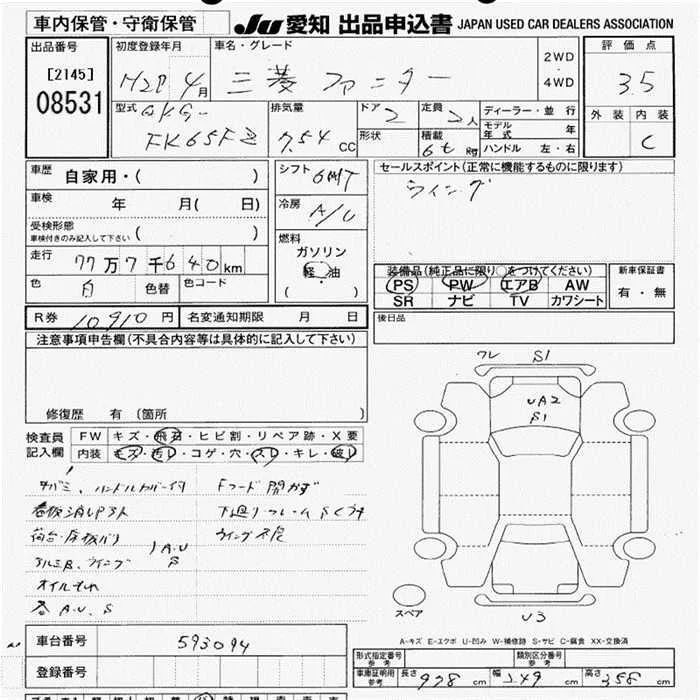 車内保管・守衛保管
JU 愛知 出品申込書 JAPAN USED CAR DEALERS ASSOCIATION
出品番号 初度登録年月 車名・グレード 2WD 評価点
[2145] H28年 4月 三菱 ファイター ・ 3.5
08531 4WD
型式 QKG- 排気量 ドア 2 定員 2人 ディーラー・並 行 外装 内装
FK65FZ 7.54 CC 形状 積載 6t Kg モデル年式 年 C
ハンドル 左・右
車歴 自家用・( ) シフト 6MT セールスポイント(正常に機能するものに限ります)
車検 年 月( 日) 冷房 A/C ウイング
受検形態 ( )
車検付きのみ記入して下さい
燃料
走行 77万7千640km ガソリン
軽油
装備品(純正品に限り○をつけてください) 新車保証書
色 白 色替 色コード ・
( )
PS PW エアB AW 有・無
SR ナビ TV カワシート
R券 10,910円 名変通知期限 月 日 後日品
注意事項申告欄(不具合内容等は具体的に記入して下さい)
ワレ S1
UA2
S1
修復歴 有 〔箇所 〕
検査員 FW キズ・飛石・ヒビ割・リペア跡・X要
記入欄 内装 キズ・汚レ・コゲ・穴・スレ・キレ・破レ
ハンドルカバー付 Fフード開かず
看板消し 下廻りフレームSくさり
荷台・床板バリ ウイング不良
アルミB、ウイング A.U
S
オイルもれ
A.U.S
スペア
U3
A-キズ E-エクボ U-凹み W-補修跡 S-サビ C-腐食 XX-交換済
車台番号 593094
形式指定番号 参考 類別区分番号 参考
登録番号 車庫証明用 参考 長さ 978 cm 幅 249 cm 高さ 358 cm